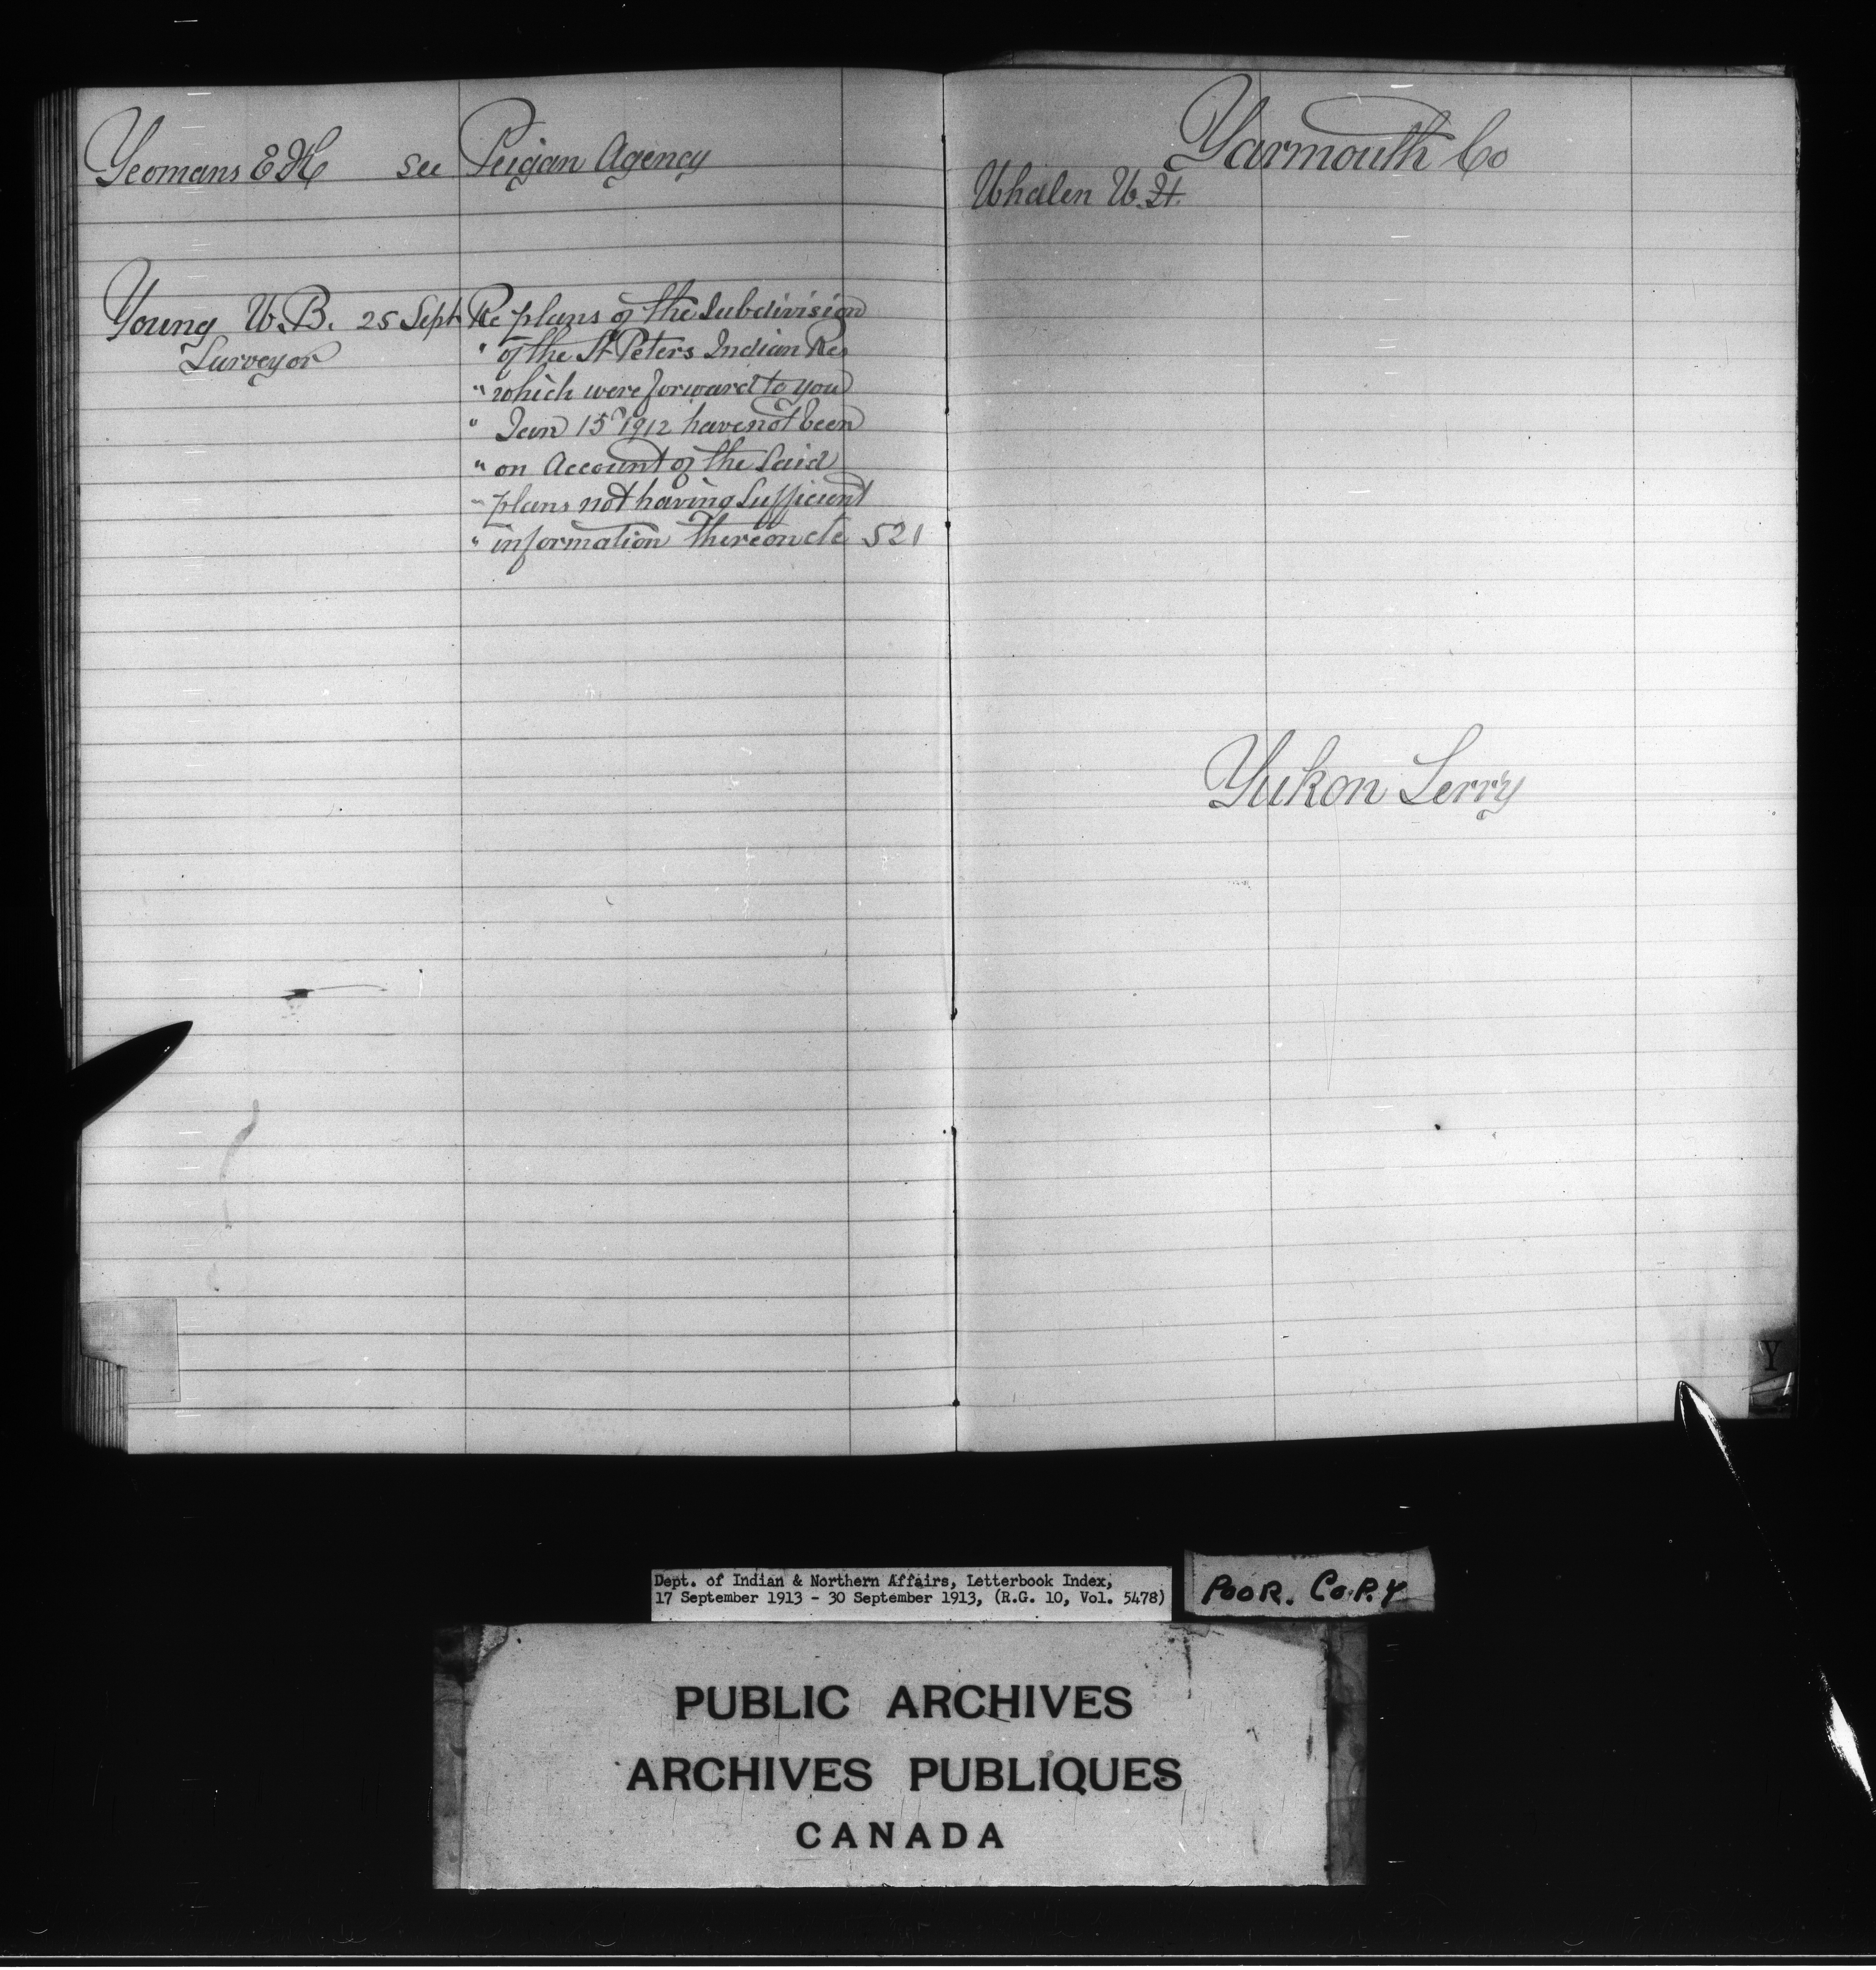 Yeomans E H see Peigan Agency
Young W. B. 25 Sept Re plans of the Subdivision
Surveyor
" of the St Peters Indian Res
" which were forward to you
" Jan 15 1912 have not been
" on Account of the Said
" plans not having Sufficient
" information thereon etc 521
Yarmouth Co
Whalen W. H.
Yukon Terry
Y
Dept. of Indian & Northern Affairs, Letterbook Index,
17 September 1913 - 30 September 1913, (R.G. 10, Vol. 5478)
POOR. COPY
PUBLIC ARCHIVES
ARCHIVES PUBLIQUES
CANADA